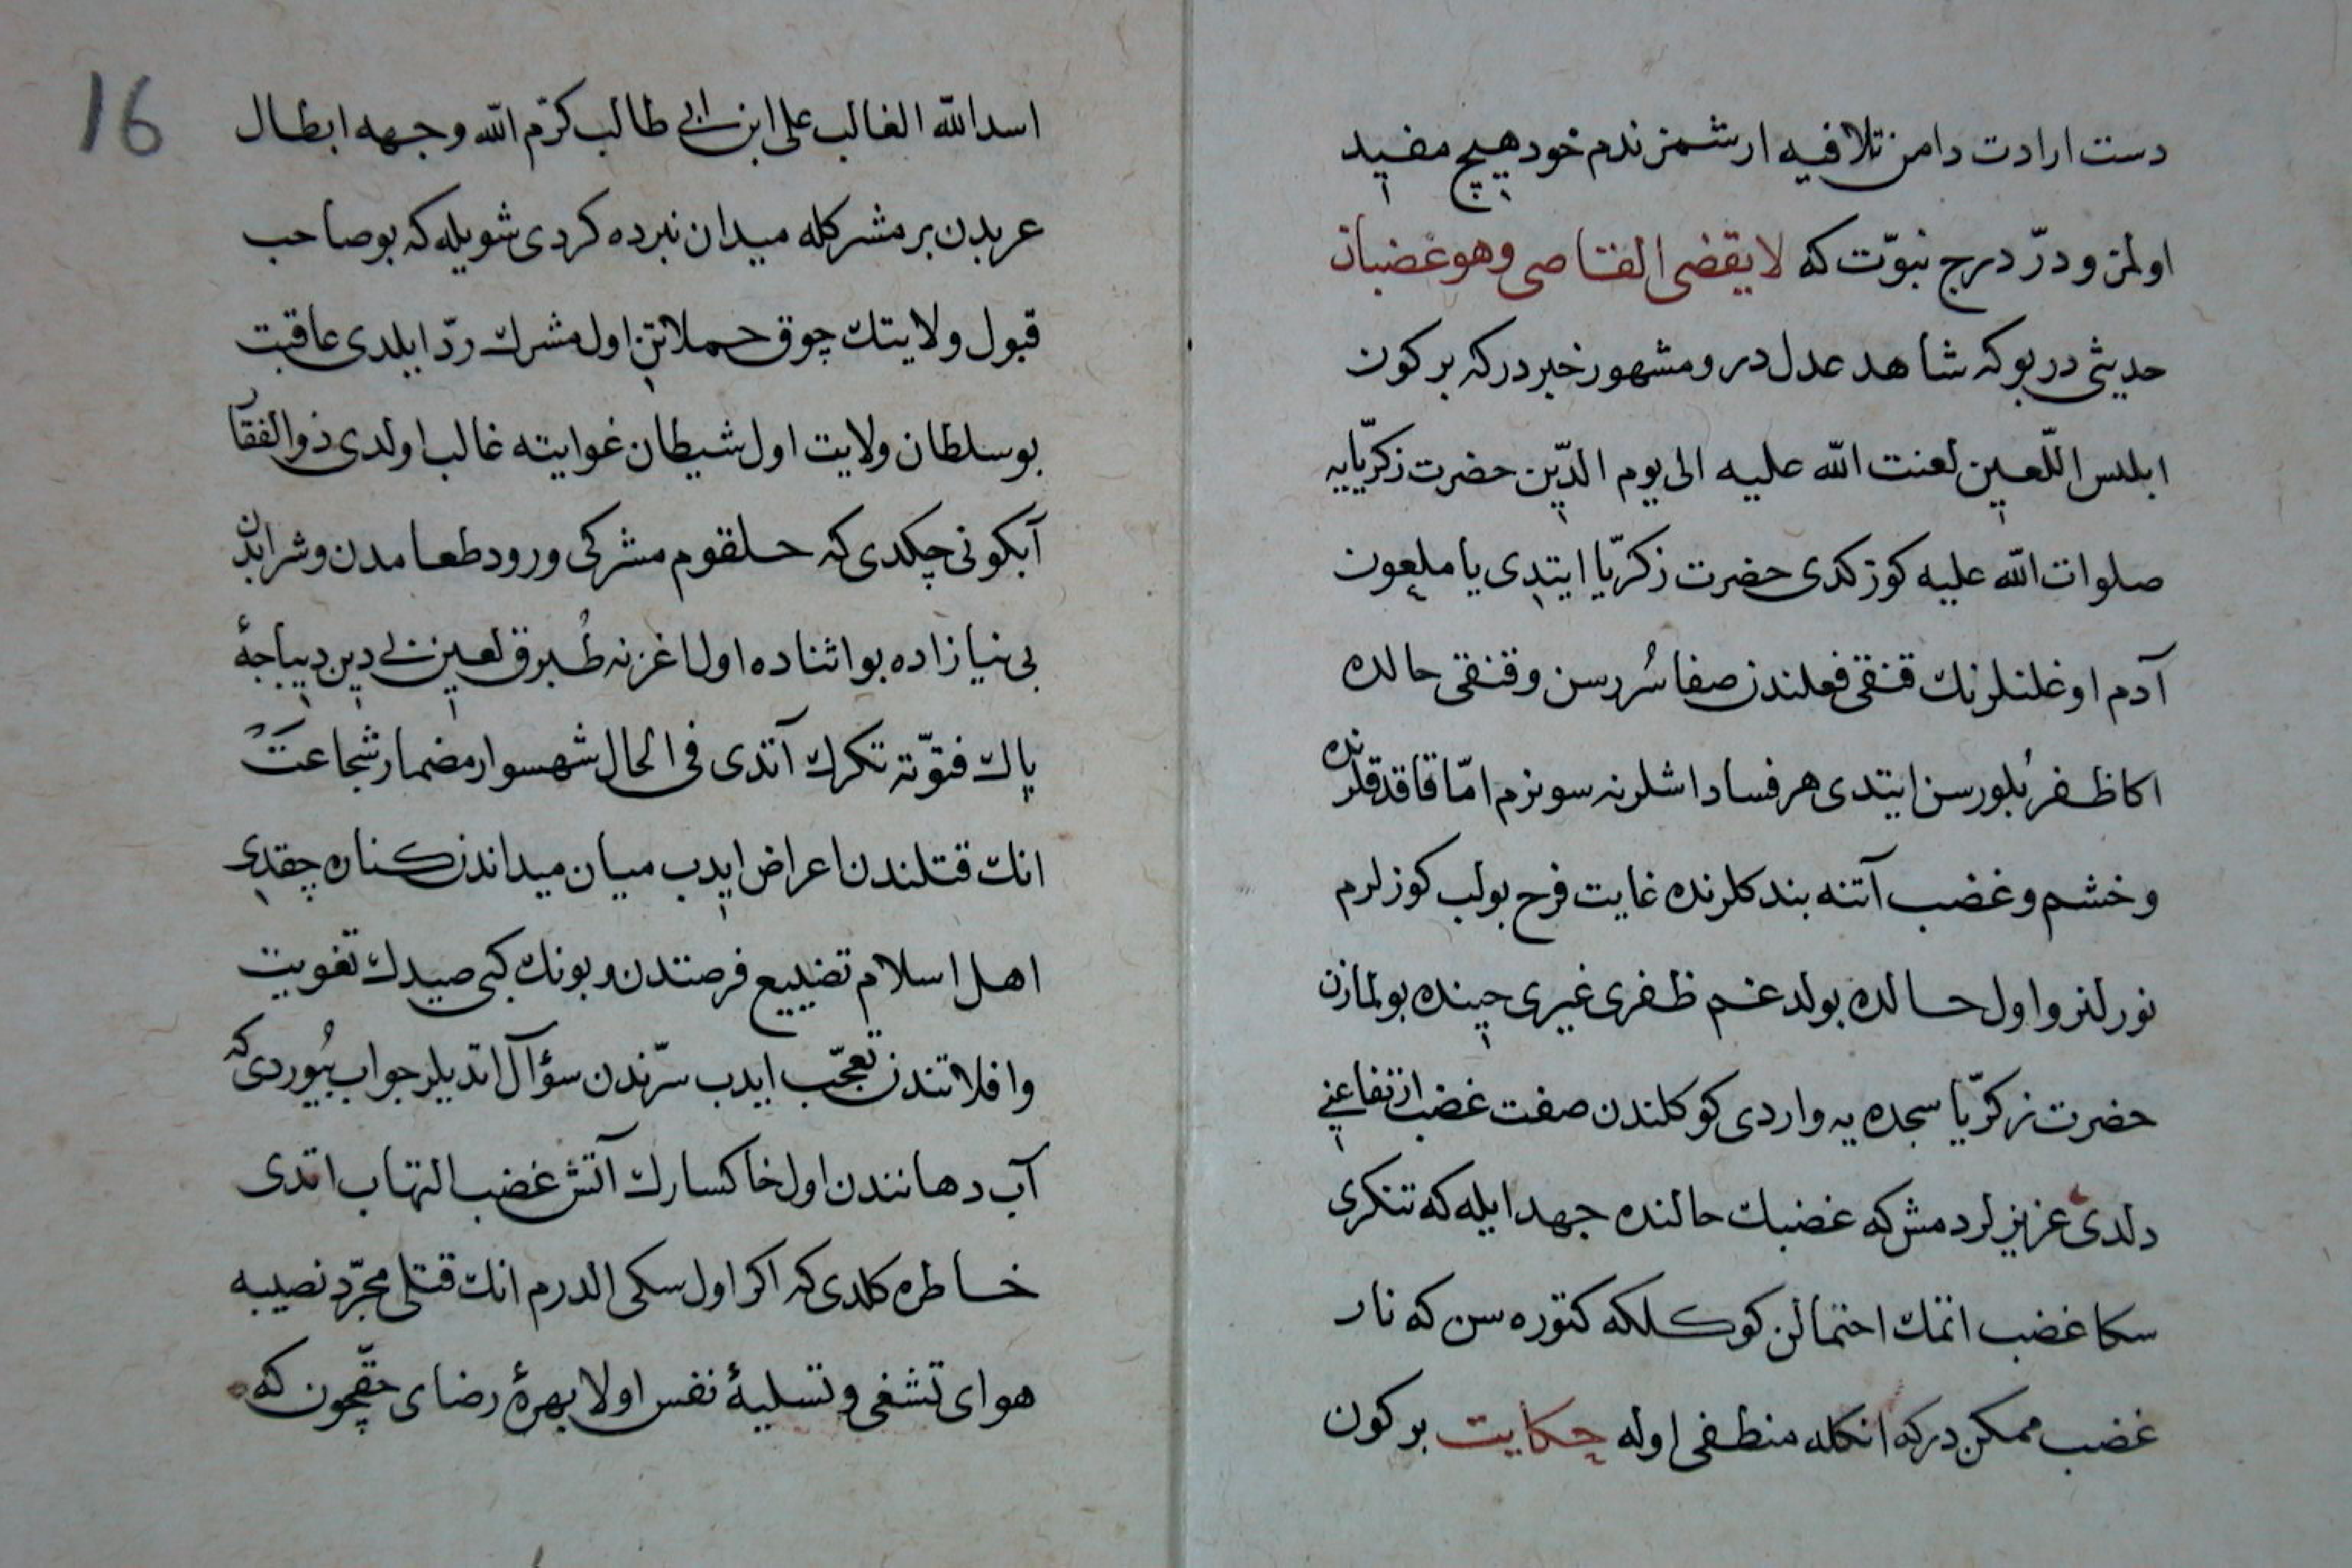 دست ارادت دامن تلافیه ارشمز ندم خود هیچ مفید
اولمز و درّ درج نبوّت که لا یقضی القاضی وهو غضبان
حدیثی در بو که شاهد عدل در و مشهور خبر در که بر کون
ابلیس اللّعین لعنت الله علیه الی یوم الدّین حضرت زکریّایه
صلوات الله علیه کوزکدی حضرت زکریّا ایتدی یا ملعون
آدم اوغلنلرنك قنقی فعلندن صفا سُررسن و قنقی حالده
اکا ظفر بُلورسن ایتدی هر فساد اشلرنه سونرم امّا قاقدقلرنده
و خشم و غضب آتنه بندکلرنده غایت فرح بولب کوزلرم
نورلنر و اول حالده بولدغم ظفری غیری حینده بولمازن
حضرت زکریّا سجده یه واردی کوکلندن صفت غضب ارتفاعنی
دلدی عزیزلر دمش که غضبك حالنده جهد ایله که تنکری
سکا غضب اتمك احتمالن کوکلکه کتوره سن که نار
غضب ممکن در که انکله منطفی اوله حکایت بر کون
16
اسد الله الغالب علی ابن ابی طالب کرّم الله وجهه ابطال
عربدن بر مشرکله میدان نبرده کردی شویله که بو صاحب
قبول ولایتك چوق حملاتن اول مشرك ردّ ایلدی عاقبت
بو سلطان ولایت اول شیطان غوایته غالب اولدی ذو الفقار
آبکونی چکدی که حلقوم مشرکی ورود طعامدن و شرابدن
بی نیاز اده بو اثناده اول اغزنه طُبرق لعین بی دین دیباجهٔ
پاك فتوّته تکرك آتدی فی الحال شهسوار مضمار شجاعت
انك قتلندن اعراض ایدب میان میداندن کناره چقدی
اهل اسلام تضییع فرصتدن و بونك کبی صیدك تفویت
و افلاتندن تعجّب ایدب سرّندن سؤال اتدیلر جواب بُیوردی که
آب دهانندن اول خاکسارك آتش غضب التهاب اتدی
خاطره کلدی که اکر اول سکی الدرم انك قتلی مجرّد نصیبه
هوای تشفی و تسلیهٔ نفس اولا بهرهٔ رضای حقّچون که